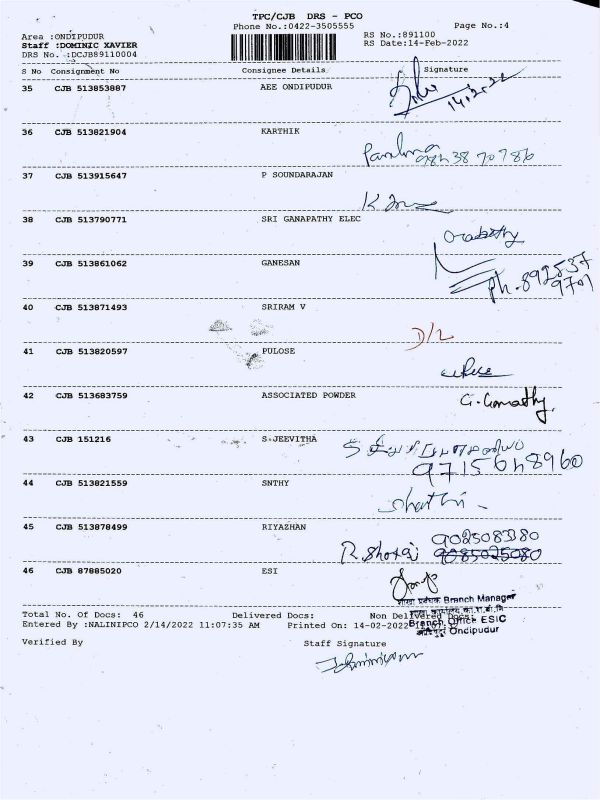 TPC/CJB DRS - PCO
Phone No.:0422-3505555 Page No.:4
Area :ONDIPUDUR RS No.:891100
Staff :DOMINIC XAVIER RS Date:14-Feb-2022
DRS No. :DCJB89110004
S No Consignment No Consignee Details Signature
35 CJB 513853887 AEE ONDIPUDUR
14.2.22
36 CJB 513821904 KARTHIK
37 CJB 513915647 P SOUNDARAJAN
38 CJB 513790771 SRI GANAPATHY ELEC
39 CJB 513861062 GANESAN
Ph.892537
9701
40 CJB 513871493 SRIRAM V
D/L
41 CJB 513820597 PULOSE
42 CJB 513683759 ASSOCIATED POWDER
G. Gomathy
43 CJB 151216 S.JEEVITHA
9715648960
44 CJB 513821559 SNTHY
45 CJB 513878499 RIYAZHAN
9025083280
46 CJB 87885020 ESI
शाखा प्रबंधक Branch Manager
Total No. Of Docs: 46 Delivered Docs: Non Delivered Docs:
Branch Office ESIC
Entered By :NALINIPCO 2/14/2022 11:07:35 AM Printed On: 14-02-2022
Ondipudur
Verified By Staff Signature